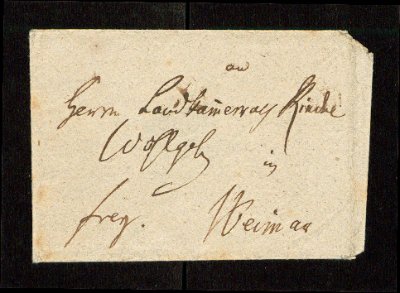 an
Herrn Landkammerrath
Wohlgeb
in
frey. Weimar